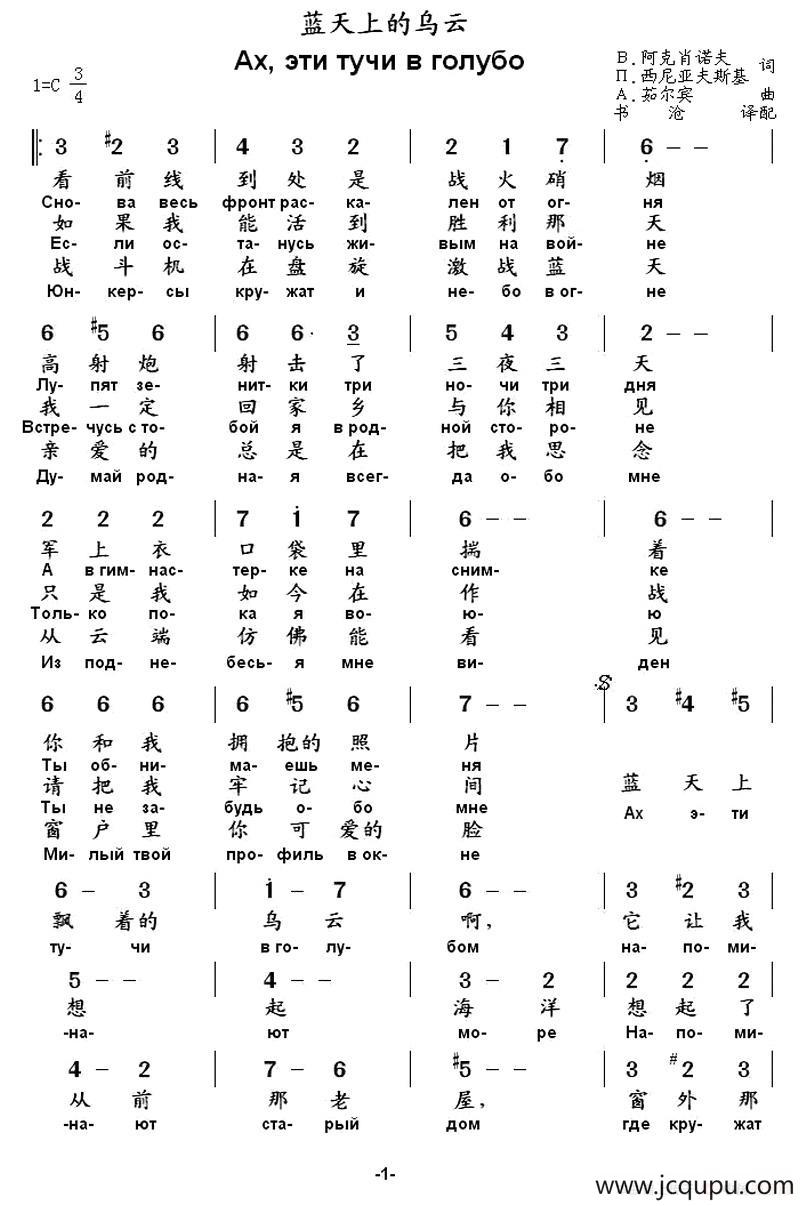 蓝天上的乌云
Ах, эти тучи в голубо
1=C 3/4
В.阿克肖诺夫 词
П.西尼亚夫斯基
А.茹尔宾 曲
书 沧 译配
3 #2 3 | 4 3 2 | 2 1 7 | 6 - - |
看 前 线 到 处 是 战 火 硝 烟
Сно- ва весь фронт рас- ка- лен от ог- ня
如 果 我 能 活 到 胜 利 那 天
Ес- ли ос- та- нусь жи- вым на вой- не
战 斗 机 在 盘 旋 激 战 蓝 天
Юн- кер- сы кру- жат и не- бо в ог- не
6 #5 6 | 6 6· 3 | 5 4 3 | 2 - - |
高 射 炮 射 击 了 三 夜 三 天
Лу- пят зе- нит- ки три но- чи три дня
我 一 定 回 家 乡 与 你 相 见
Встре- чусь с то- бой я в род- ной сто- ро- не
亲 爱 的 总 是 在 把 我 思 念
Ду- май род- на- я всег- да о- бо мне
2 2 2 | 7 1 7 | 6 - - | 6 - - |
军 上 衣 口 袋 里 揣 着
А в гим- нас- тер- ке на сним- ке
只 是 我 如 今 在 作 战
Толь- ко по- ка я во- ю- ю
从 云 端 仿 佛 能 看 见
Из под- не- бесь- я мне ви- ден
6 6 6 | 6 #5 6 | 7 - - | 3 #4 #5 |
你 和 我 拥 抱 的 照 片
Ты об- ни- ма- ешь ме- ня
请 把 我 牢 记 心 间 蓝 天 上
Ты не за- будь о- бо мне Ах э- ти
窗 户 里 你 可 爱 的 脸
Ми- лый твой про- филь в ок- не
6 - 3 | 1 - 7 | 6 - - | 3 #2 3 |
飘 着 的 乌 云 啊, 它 让 我
ту- чи в го- лу- бом на- по- ми-
5 - - | 4 - - | 3 - 2 | 2 2 2 |
想 起 海 洋 想 起 了
-на- ют мо- ре На- по- ми-
4 - 2 | 7 - 6 | #5 - - | 3 #2 3 |
从 前 那 老 屋, 窗 外 那
-на- ют ста- рый дом где кру- жат
-1-
www.jcqupu.com